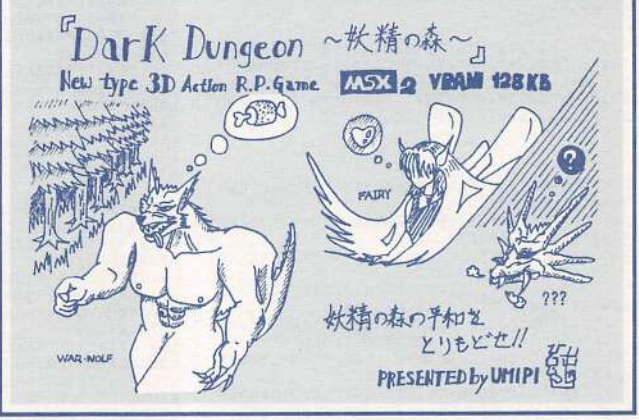 『Dark Dungeon ～妖精の森～』
New type 3D Action R.P.Game MSX2 VRAM 128KB
FAIRY
?
???
妖精の森の平和を
とりもどせ!!
WAR-WOLF
PRESENTED by UMIPI